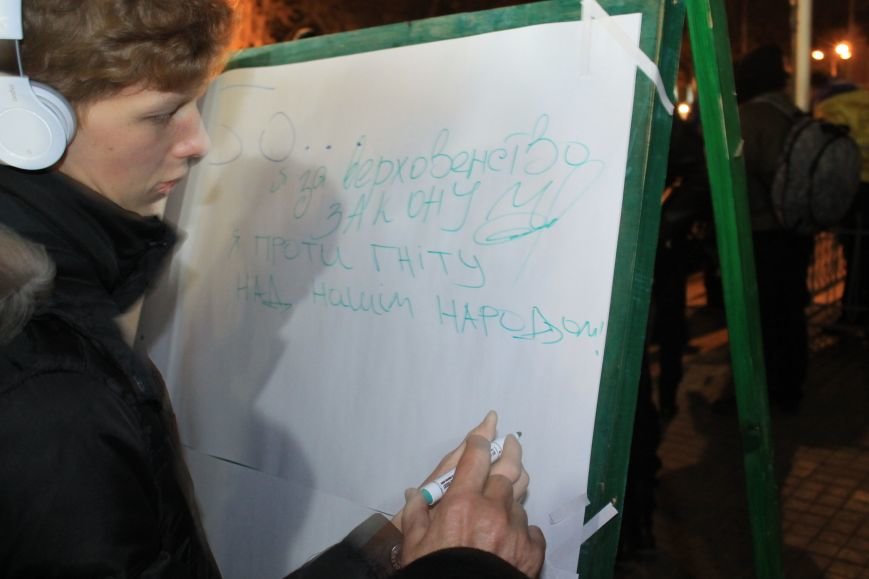 БО...
я за верховенство
ЗАКОНУ
Я ПРОТИ ГНІТУ
НАД нашім НАРОДОм!